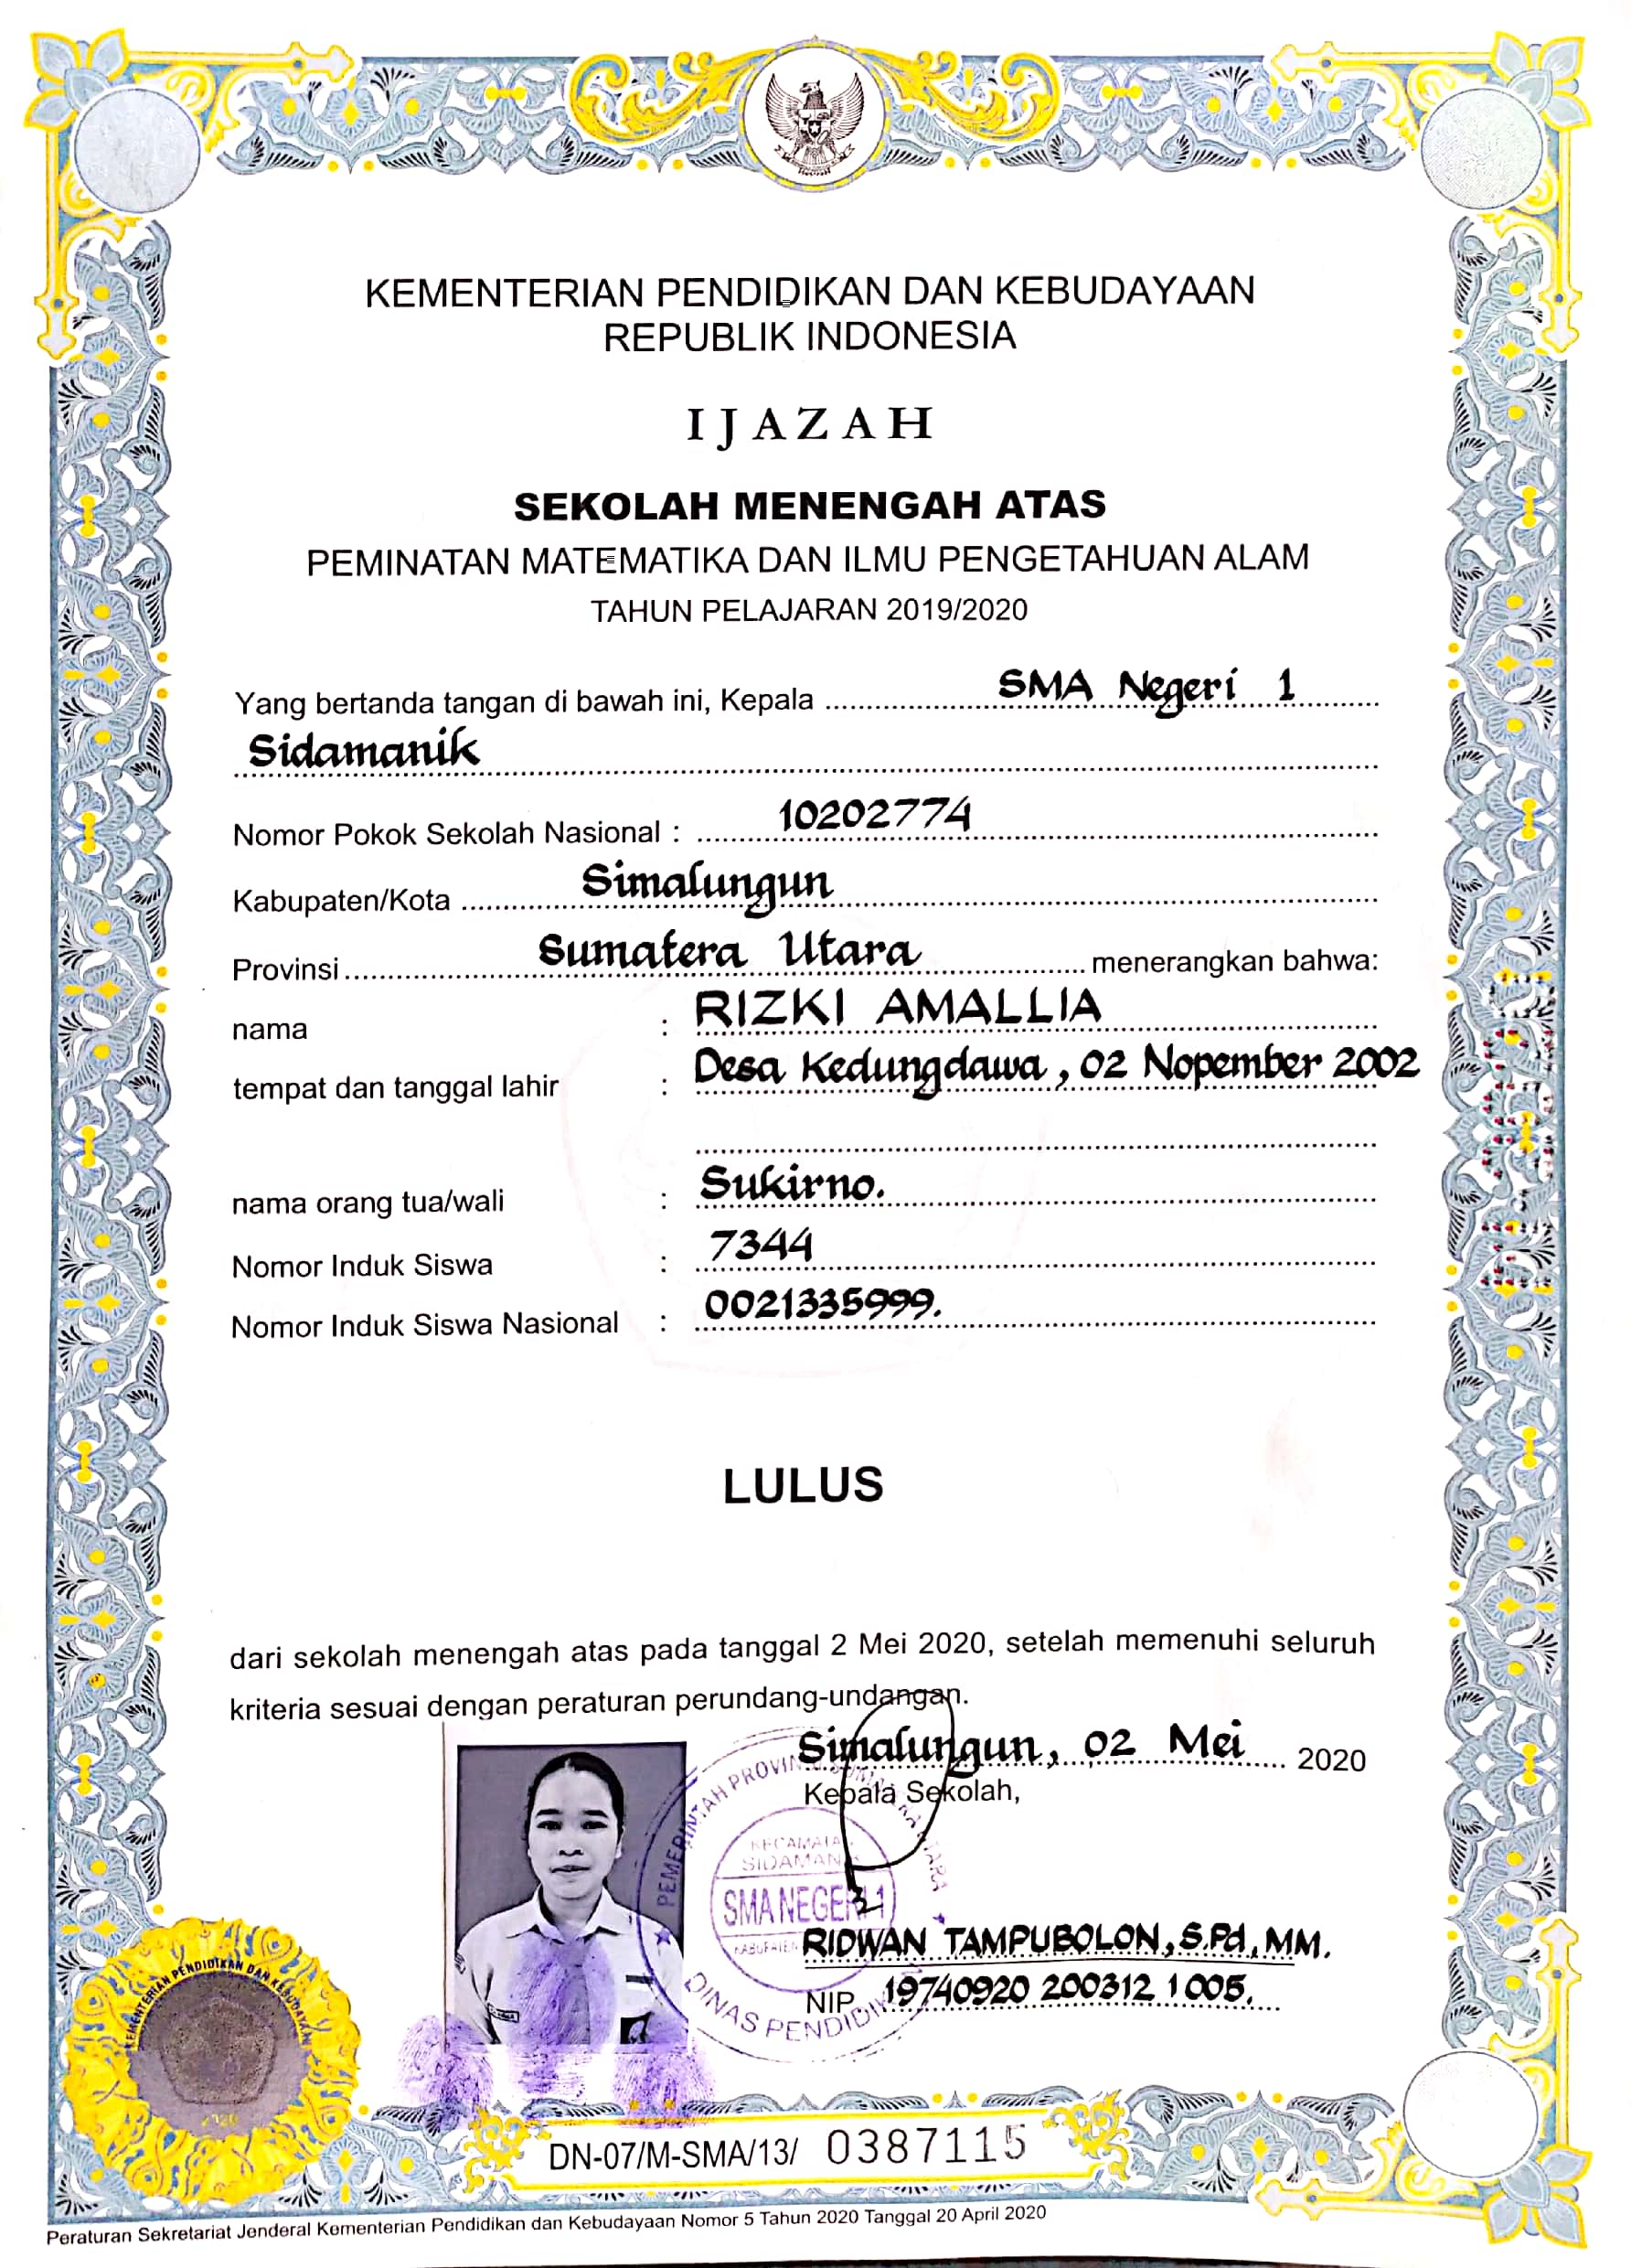 KEMENTERIAN PENDIDIKAN DAN KEBUDAYAAN
REPUBLIK INDONESIA
IJAZAH
SEKOLAH MENENGAH ATAS
PEMINATAN MATEMATIKA DAN ILMU PENGETAHUAN ALAM
TAHUN PELAJARAN 2019/2020
Yang bertanda tangan di bawah ini, Kepala SMA Negeri 1
Sidamanik
Nomor Pokok Sekolah Nasional : 10202774
Kabupaten/Kota Simalungun
Provinsi Sumatera Utara menerangkan bahwa:
nama : RIZKI AMALLIA
tempat dan tanggal lahir : Desa Kedungdawa, 02 Nopember 2002
nama orang tua/wali : Sukirno.
Nomor Induk Siswa : 7344
Nomor Induk Siswa Nasional : 0021335999.
LULUS
dari sekolah menengah atas pada tanggal 2 Mei 2020, setelah memenuhi seluruh
kriteria sesuai dengan peraturan perundang-undangan.
Simalungun, 02 Mei 2020
Kepala Sekolah,
PEMERINTAH PROVINSI SUMATERA UTARA
SMA NEGERI 1
DINAS PENDIDIKAN
RIDWAN TAMPUBOLON, S.Pd, MM.
NIP 19740920 200312 1 005.
KEMENTERIAN PENDIDIKAN DAN KEBUDAYAAN
2020
DN-07/M-SMA/13/ 0387115
Peraturan Sekretariat Jenderal Kementerian Pendidikan dan Kebudayaan Nomor 5 Tahun 2020 Tanggal 20 April 2020